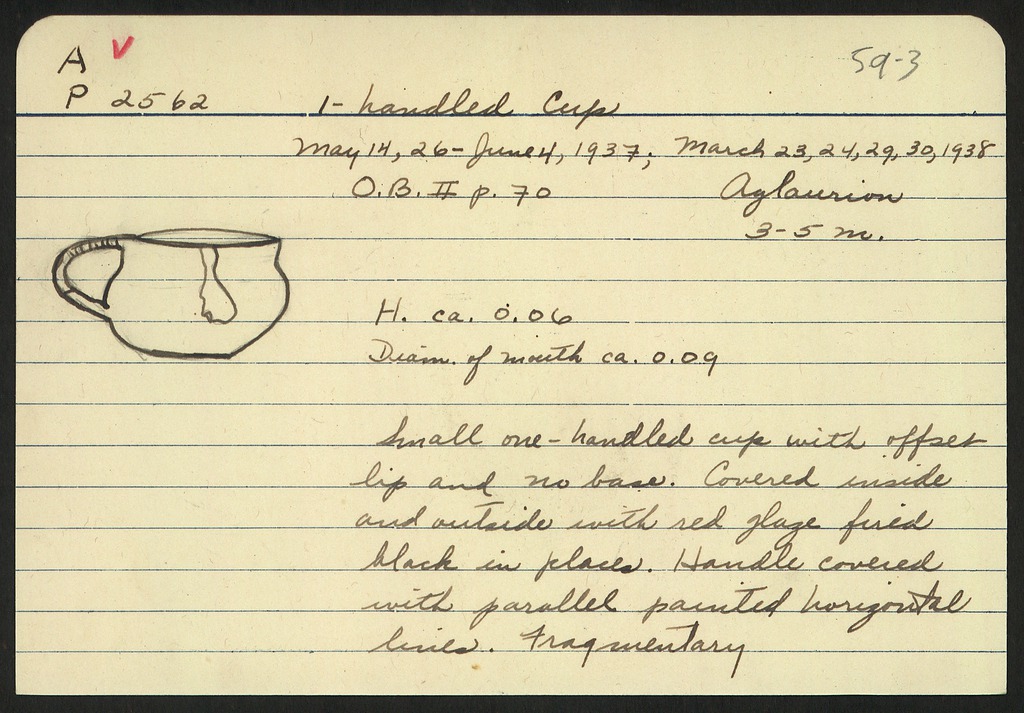 A V 59-3
P 2562 1-handled Cup
May 14, 26-June 4, 1937; March 23, 24, 29, 30, 1938
O.B. II p. 70 Aglaurion
3-5 m.
H. ca. 0.06
Diam. of mouth ca. 0.09
Small one-handled cup with offset
lip and no base. Covered inside
and outside with red glaze fired
black in places. Handle covered
with parallel painted horizontal
lines. Fragmentary